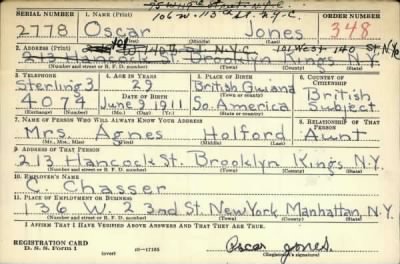 106 W. 113th St. N.Y.C.
SERIAL NUMBER 1. NAME (Print) ORDER NUMBER
2778 Oscar Jones 348
(First) (Middle) (Last)
2. ADDRESS (Print) 101 West 140 St N.Y.C.
213 Hancock St. Brooklyn Kings N.Y.
(Number and street or R. F. D. number) (Town) (County) (State)
3. TELEPHONE 4. AGE IN YEARS 5. PLACE OF BIRTH 6. COUNTRY OF CITIZENSHIP
Sterling 3 29 British Guiana British
DATE OF BIRTH (Town or county)
4074 June 9 1911 So. America Subject
(Exchange) (Number) (Mo.) (Day) (Yr.) (State or country)
7. NAME OF PERSON WHO WILL ALWAYS KNOW YOUR ADDRESS 8. RELATIONSHIP OF THAT PERSON
Mrs. Agnes Holford Aunt
(Mr., Mrs., Miss) (First) (Middle) (Last)
9. ADDRESS OF THAT PERSON
213 Hancock St. Brooklyn Kings N.Y.
(Number and street or R. F. D. number) (Town) (County) (State)
10. EMPLOYER'S NAME
C. Chasser
11. PLACE OF EMPLOYMENT OR BUSINESS
136 W. 23nd St. New York Manhattan, N.Y.
(Number and street or R. F. D. number) (Town) (County) (State)
I AFFIRM THAT I HAVE VERIFIED ABOVE ANSWERS AND THAT THEY ARE TRUE.
REGISTRATION CARD
D. S. S. Form 1 (over) 16—17105
Oscar Jones
(Registrant's signature)